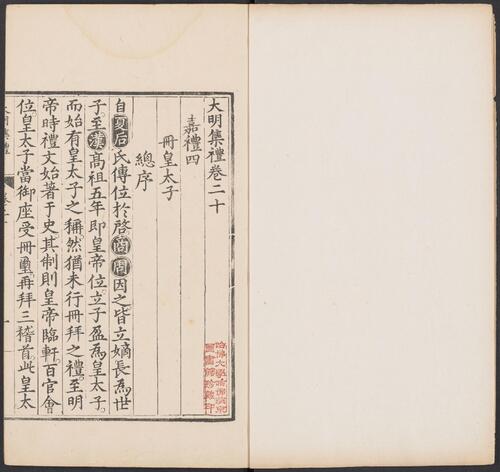 大明集禮卷二十
嘉禮四
冊皇太子
總序
自夏后氏傳位於啓商周因之皆立嫡長為世
子至漢高祖五年即皇帝位立子盈為皇太子
而始有皇太子之稱然猶未行冊拜之禮至明
帝時禮文始著于史其制則皇帝臨軒百官會
位皇太子當御座受冊璽再拜三稽首此皇太